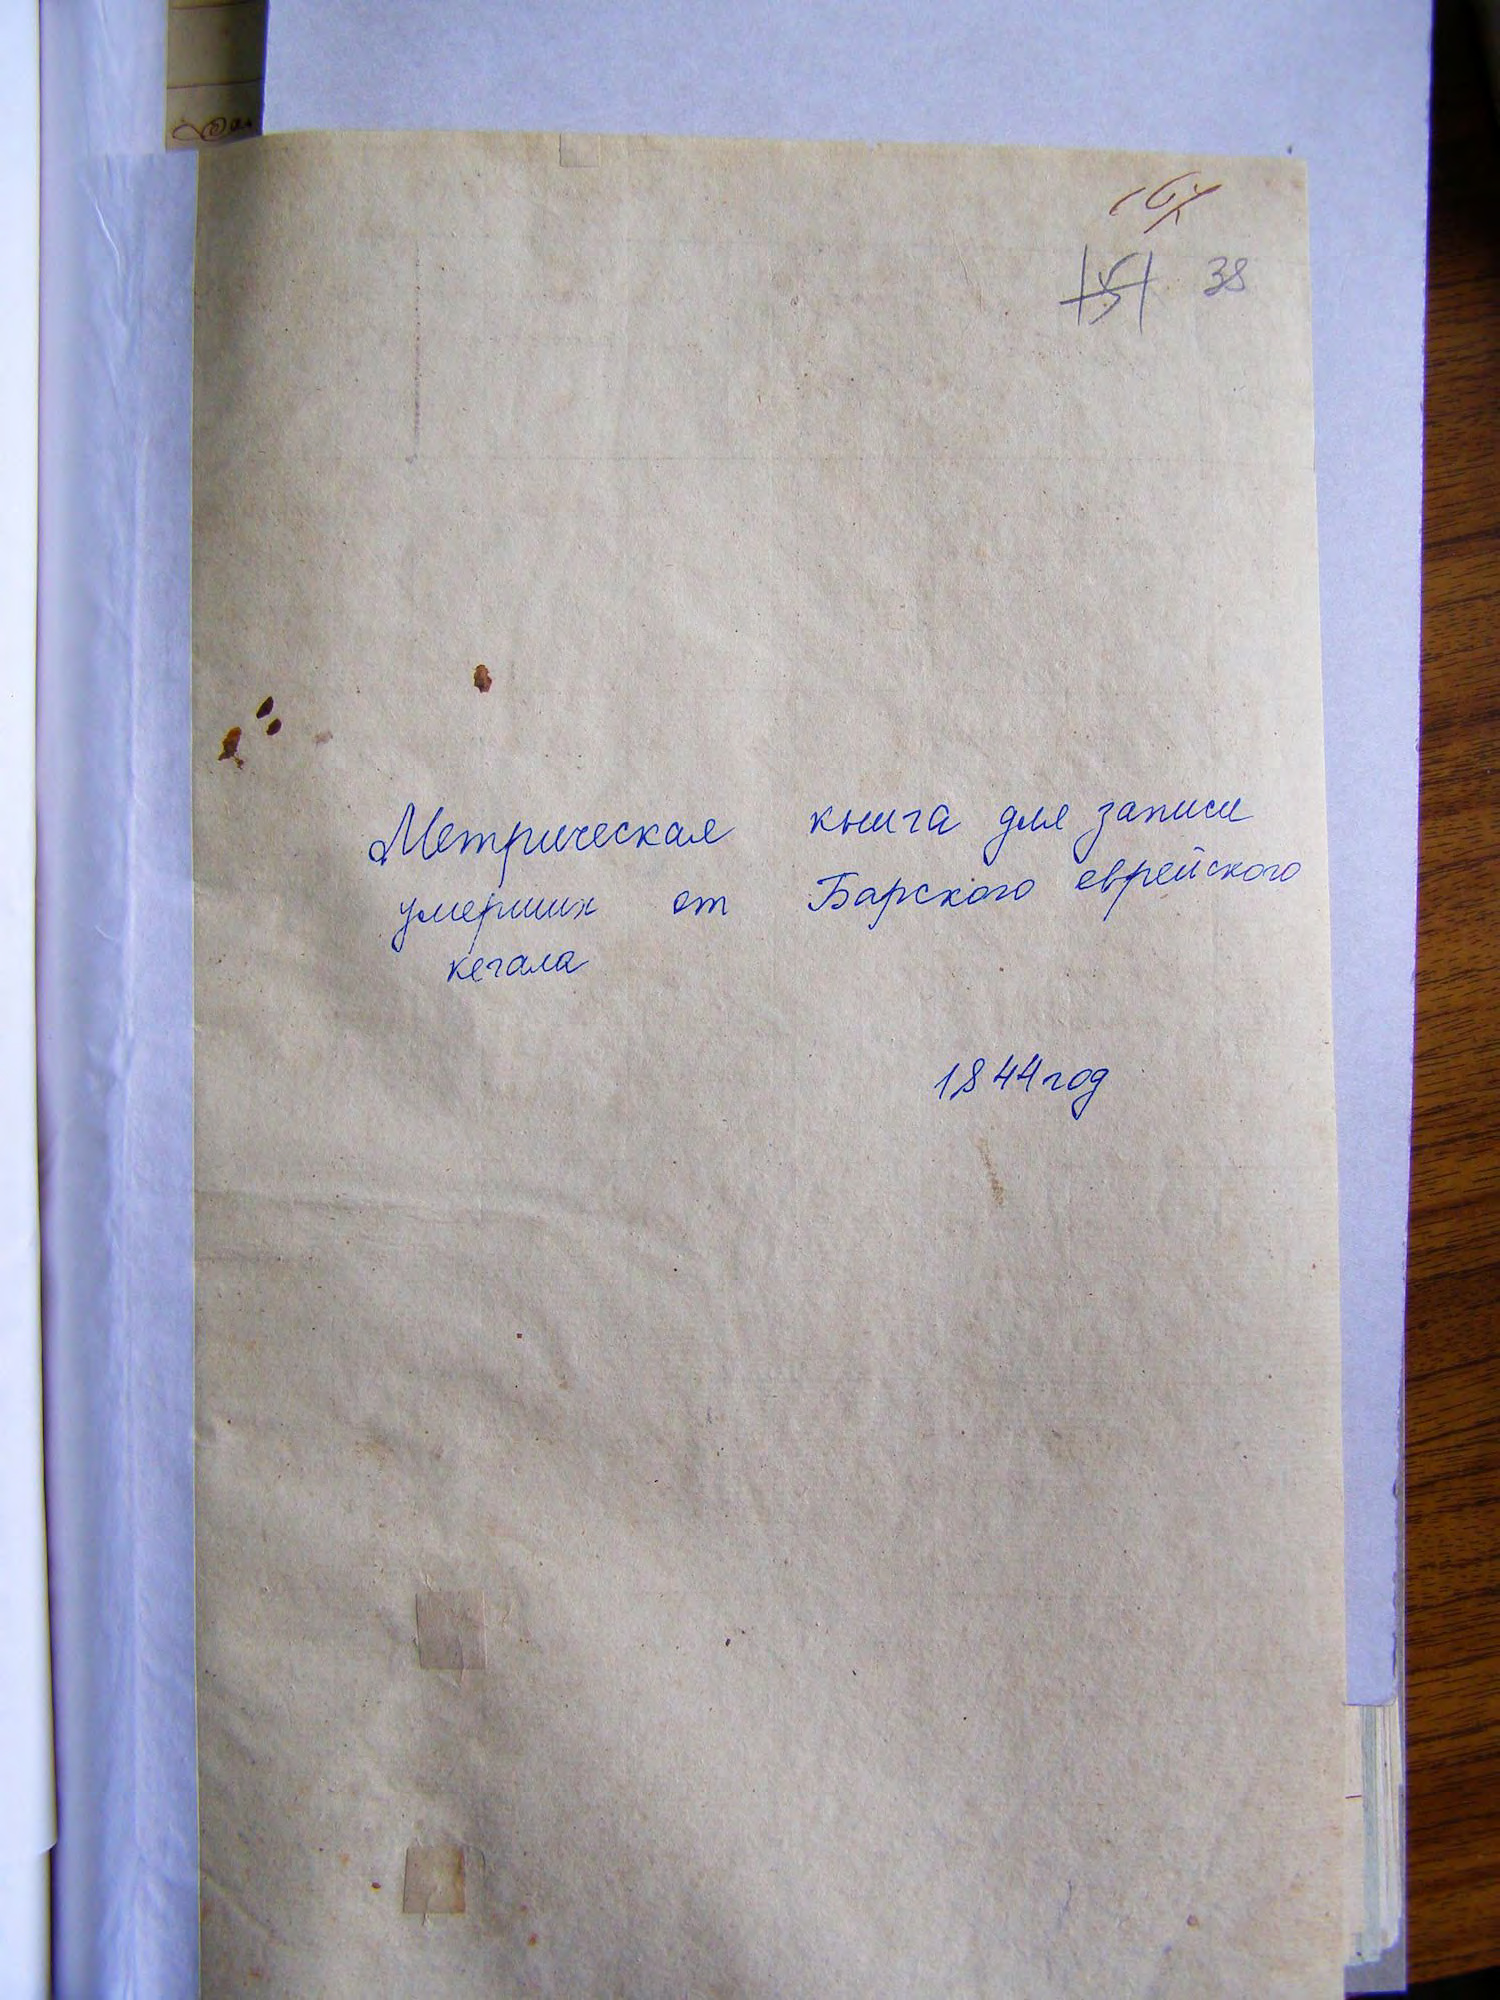 38
Метрическая книга для записи
умерших от Барского еврейского
кегала
1844 год